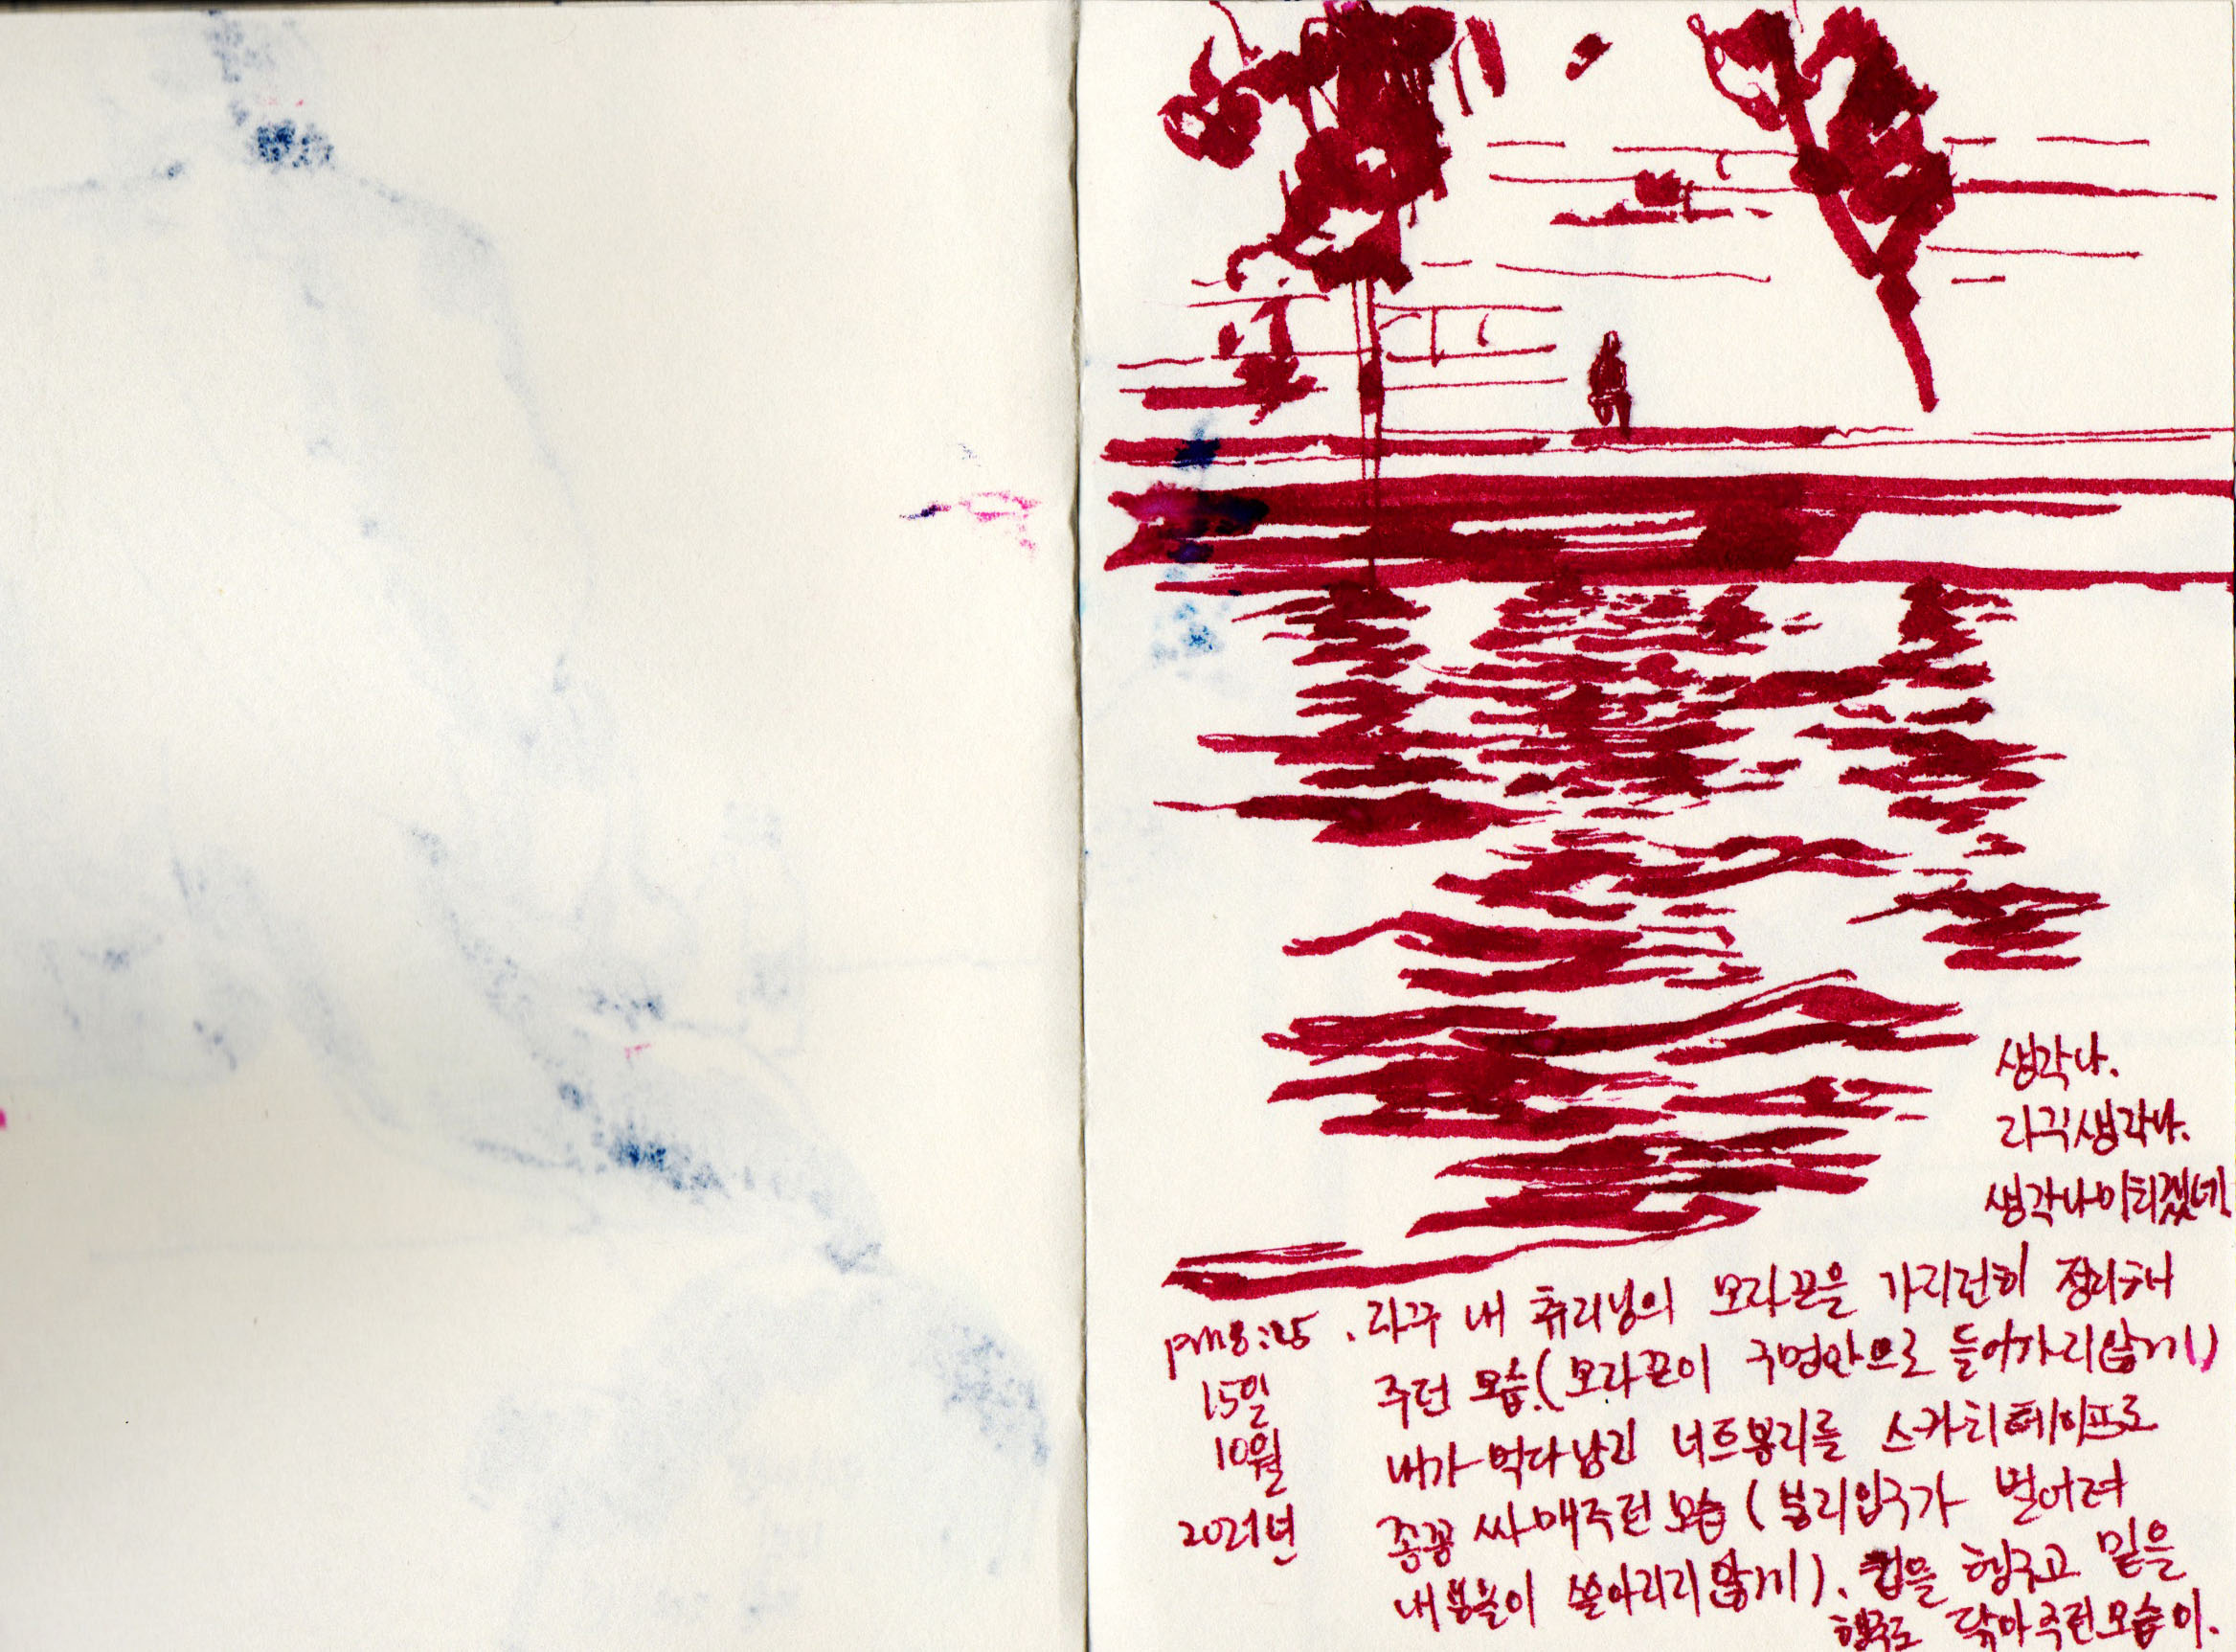 생각나.
자꾸 생각나.
생각나 미치겠네
pm8:25 . 자꾸 내 츄리닝의 모자끈을 가지런히 정리해
15일 주던 모습.(모자끈이 구멍안으로 들어가지않게)
10월 내가 먹다남긴 너트봉지를 스카치테이프로
2021년 종종 싸매주던 모습 (봉지입구가 벌어져
내용물이 쏟아지지않게). 컵을 헹구고 밑을
행주로 닦아주던모습이.